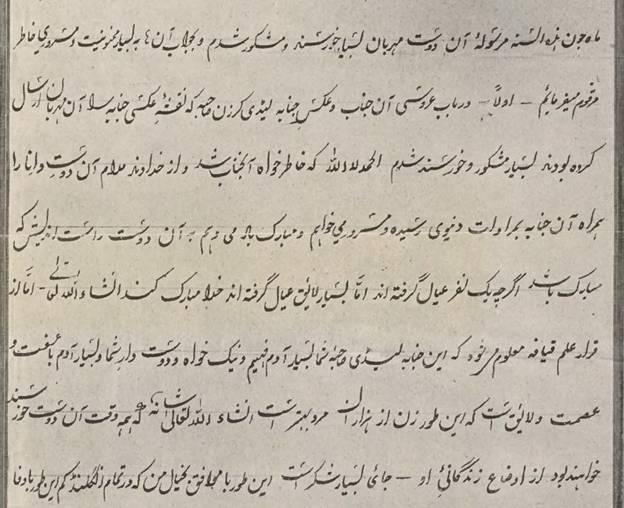 ماه جون هذه السنه مرسوله آن دوست مهربان بسیار خورسند و مشکور شدم و بجواب آن ها به بسیار ممنونیت و مسروری خاطر
مرقوم میفرمایم – اولاً – در باب عروسی آن جناب و عکس جنابه لیدی کرزن صاحبه که نقشهٔ عکسی جنابه را آن مهربان ارسال
کرده بودند بسیار مشکور و خورسند شدم الحمد لله که خاطر خواه آنجناب شد و از خداوند مدام آن دوست دانا را
همراه آن جنابه بمرادات دنیوی رسیده و مسرور می خواهم و مبارک باد می دهم به آن دوست راست اندیش که
مبارک باشد اگرچه یک نفر عیال گرفته اند امّا بسیار لائق عیال گرفته اند خدا مبارک کند انشاء الله تعالی – امّا از
قرار علم قیافه معلوم میشود که این جنابه لیدی صاحبه شما بسیار آدم فهیم و نیک خواه و دوست دار شما و بسیار آدم با عفت و
عصمت و لائق است که این طور زن از هزاران مرد بهتر است انشاء الله تعالی شانه که همه وقت آن دوست خورسند
خواهند بود از اوضاع زندگانیِ او – جای بسیار شکر است این طور با موافق بخیال من که در تمام انگلند کم این طور با وفا